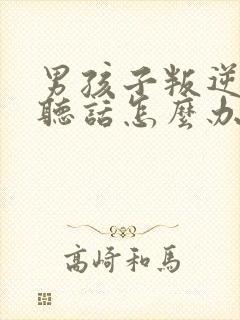 男孩子叛逆
聽話怎麼办
高崎和馬